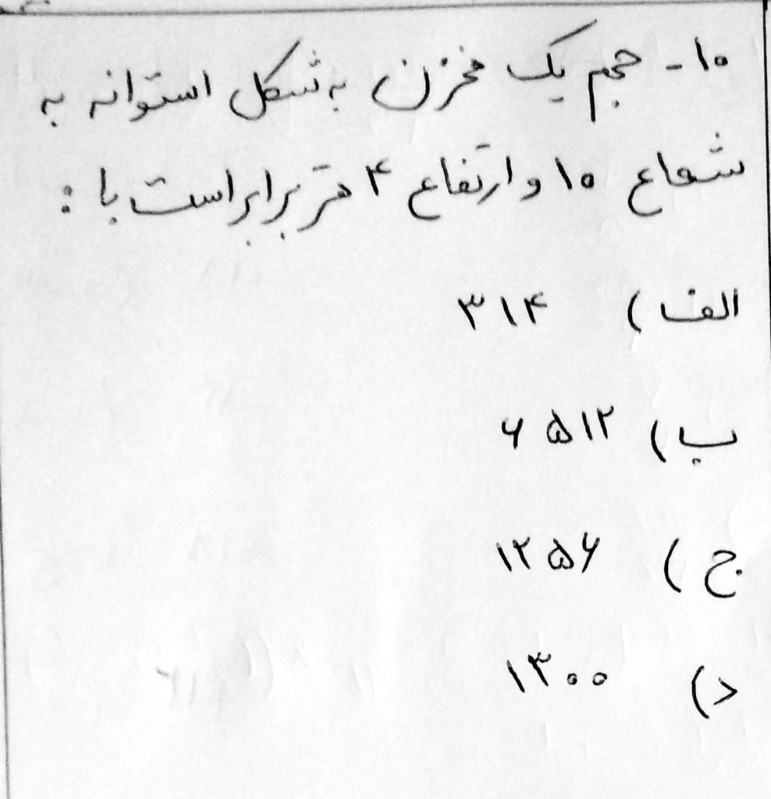 ۱۰- حجم یک مخزن به شکل استوانه به
شعاع ۱۰ و ارتفاع ۴ متر برابر است با :
الف) ۳۱۴
ب) ۶۵۱۲
ج) ۱۲۵۶
د) ۱۳۰۰